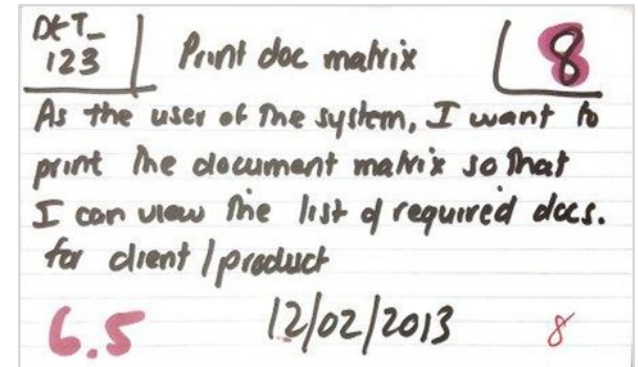 DET_
123
Print doc matrix
8
As the user of the system, I want to
print the document matrix so that
I can view the list of required docs.
for client / product
6.5
12/02/2013
8